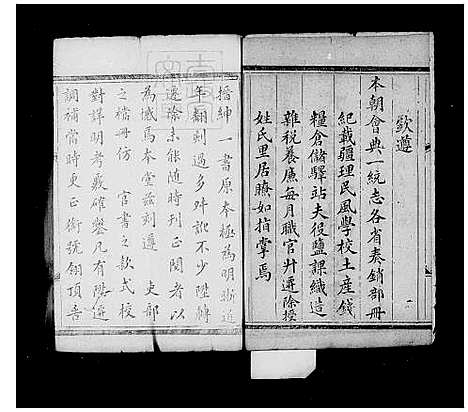 欽遵
本朝會典一統志各省奏銷部冊
紀載疆理民風學校土産錢
糧倉儲驛站夫役鹽課織造
雜税養廉每月職官升遷除授
姓氏里居瞭如指掌焉
一
搢紳一書原本極為明晰近
年翻刻過多舛訛不少陞轉
遷除未能随時刊正閱者以
為憾焉本堂茲刻遵 吏部
之檔冊仿 官書之款式校
對詳明考覈確鑿凡有陞遷
調補當時更正銜號翎頂吿